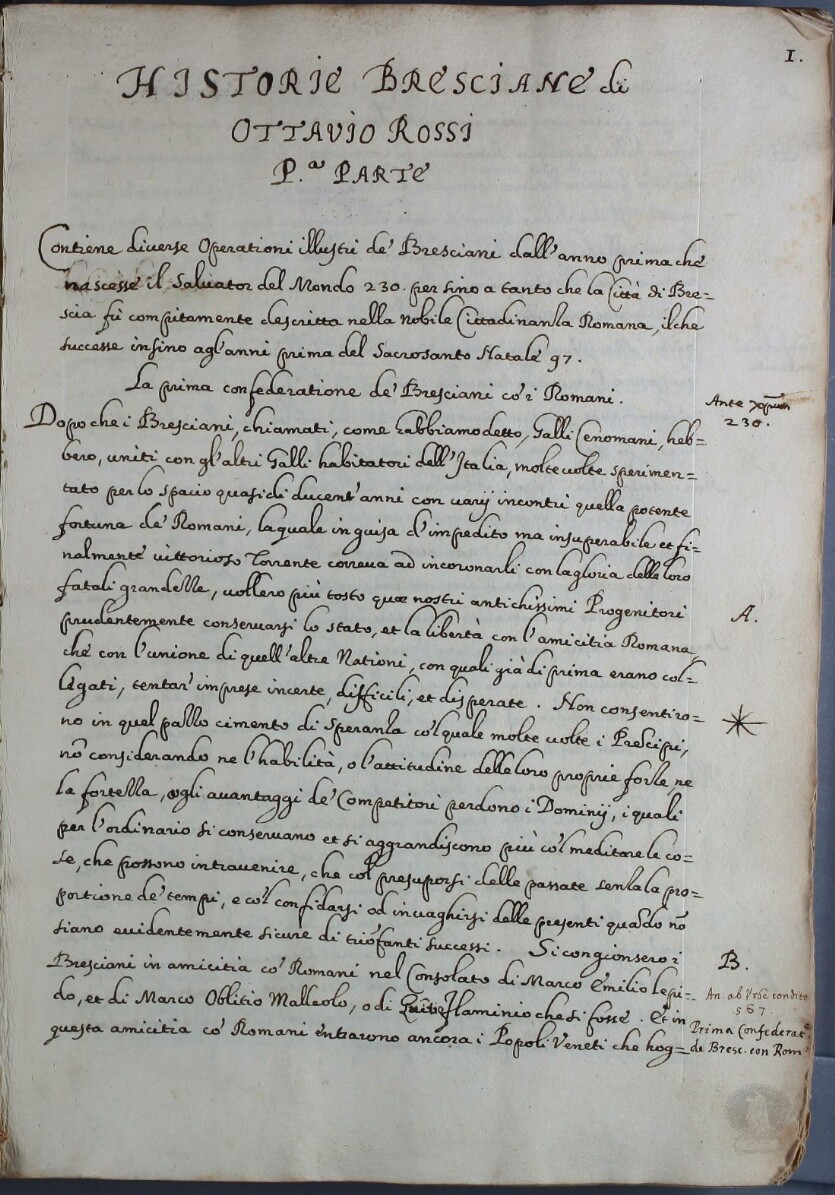 1.
HISTORIE BRESCIANE di
OTTAVIO ROSSI
P.a PARTE
Contiene diverse Operationi illustri de' Bresciani dall'anno prima che
nascesse il Salvator del Mondo 230. per sino a tanto che la Città di Bre=
scia fù compitamente descritta nella nobile Cittadinanza Romana, ilche
successe insino agl'anni prima del Sacrosanto Natale 97.
La prima confederatione de' Bresciani co' i Romani.
Ante xpum
230.
Dopo che i Bresciani, chiamati, come habbiamo detto, Galli Cenomani, heb=
bero, uniti con gl'altri Galli habitatori dell'Italia, molte volte sperimen=
tato per lo spacio quasi di ducent'anni con varij incontri quella potente
fortuna de' Romani, laquale in guisa d'impedito ma insuperabile et fi=
nalmente vittorioso Torrente correva ad incoronarli con la gloria delle loro
fatali grandezze, vollero più tosto que nostri antichissimi Progenitori
A.
prudentemente conservarsi lo stato, et la libertà con l'amicitia Romana,
che con l'unione di quell'altre Nationi, con quali già di prima erano col=
legati, tentar' imprese incerte, difficili, et disperate. Non consentiro=
no in quel pazzo cimento di Speranza co'l quale molte volte i Prēcipi,
nō considerando ne l'habilità, o l'attitudine delle loro proprie forze, ne
la fortezza, o gli avantaggi de' Competitori perdono i Dominij, i quali
per l'ordinario si conservano et si aggrandiscono più co'l meditare le co=
se, che possono intravenire, che col presuporsi delle passate senza la pro=
portione de' tempi, e co'l confidarsi od invaghirsi delle presenti quādo nō
siano evidentemente sicure di triōfanti successi. Si congionsero i
B.
Bresciani in amicitia co' Romani nel Consolato di Marco Emilio Lepi=
An. ab Urbe condita
567.
do, et di Marco Oblitio Malleolo, o di Flaminio che si fosse. Et in
Prima Confederat.e
de Bresc. con Rom
questa amicitia co' Romani entrarono ancora i Popoli Veneti che hog=